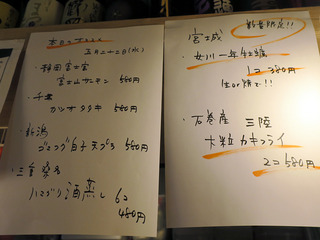 本日のオススメ
五月二十二日(水)
・静岡 富士宮
富士山サーモン 580円
・千葉
カツオタタキ 580円
・新潟
白子天プラ 580円
・三重 桑名
ハマグリ酒蒸し 6コ
480円
数量限定!!
・宮城
女川 一年牡蠣
1コ 380円
生or焼き!!
・石巻産 三陸
大粒カキフライ
2コ 580円